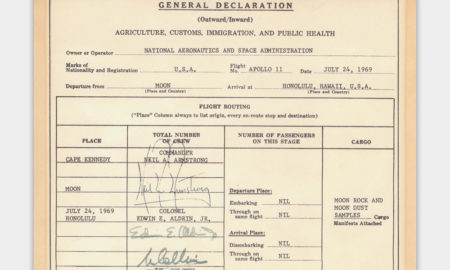 GENERAL DECLARATION
(Outward/Inward)
AGRICULTURE, CUSTOMS, IMMIGRATION, AND PUBLIC HEALTH
Owner or Operator NATIONAL AERONAUTICS AND SPACE ADMINISTRATION
Marks of Nationality and Registration U.S.A. Flight No. APOLLO 11 Date JULY 24, 1969
Departure from MOON Arrival at HONOLULU, HAWAII, U.S.A.
(Place and Country) (Place and Country)
FLIGHT ROUTING
("Place" Column always to list origin, every en-route stop and destination)
PLACE TOTAL NUMBER OF CREW NUMBER OF PASSENGERS ON THIS STAGE CARGO
CAPE KENNEDY
COMMANDER
NEIL A. ARMSTRONG
Neil A. Armstrong
MOON
JULY 24, 1969
HONOLULU
COLONEL
EDWIN E. ALDRIN, JR.
Edwin E. Aldrin
M Collins
Departure Place:
Embarking NIL
Through on same flight NIL
Arrival Place:
Disembarking NIL
Through on same flight NIL
MOON ROCK AND
MOON DUST
SAMPLES Cargo
Manifests Attached